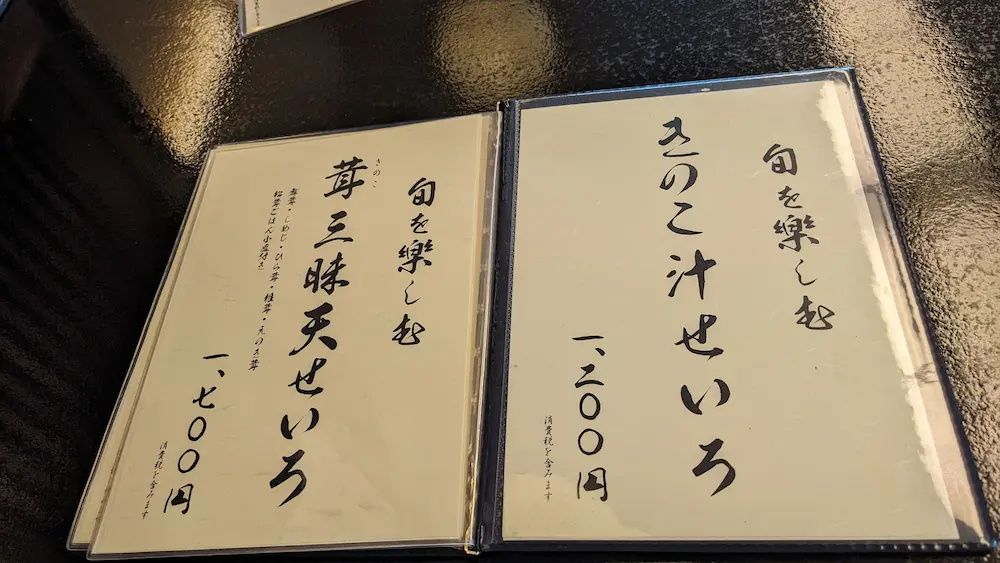 旬を樂しむ
きのこ汁せいろ
一、二〇〇円
消費税を含みます
旬を樂しむ
きのこ
茸三昧天せいろ
舞茸・しめじ・ひら茸・椎茸・えのき茸
松茸ごはん小盛付き
一、七〇〇円
消費税を含みます